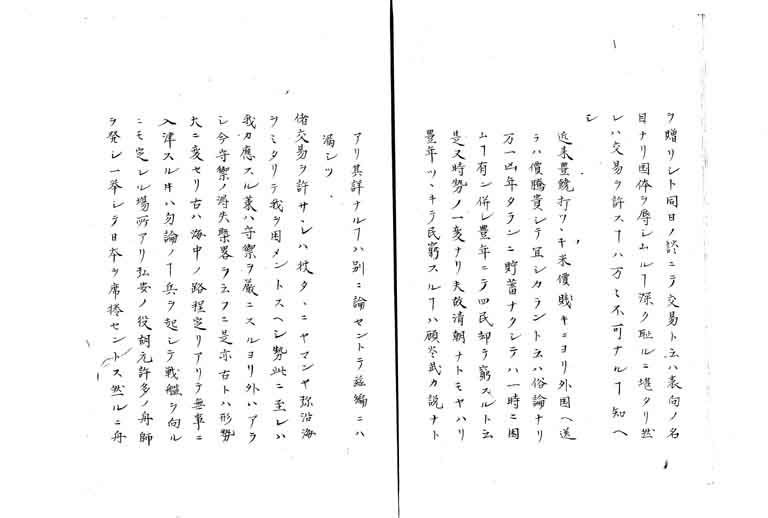 ヲ贈リシト同日ノ談ニテ交易ト云ハ表向ノ名
目ナリ国体ヲ辱シムルヿ深ク恥ルニ堪タリ然
レハ交易ヲ許スヿハ万々不可ナルヿ知ヘ
シ
近来豊饒打ツヽキ米價賤キニヨリ外国ヘ送
ラハ價騰貴シテ宜シカラント云ハ俗論ナリ
万一凶年タランニ貯蓄ナクシテハ一時ニ困
ムヿ有ン併シ豊年ニテ四民却テ窮スルト云
是又時勢ノ一変ナリ夫故清朝ナトモヤハリ
豊年ツヽキテ民窮スルヿハ顧炎武カ説ナト
アリ其詳ナルヿハ別ニ論セントテ茲編ニハ
漏シツ
偖交易ヲ許サヽレハ彼タヽニヤマンヤ弥沿海
ヲミタリテ我ヲ困メントスヘシ勢此ニ至レハ
我カ應スル策ハ守禦ヲ厳ニスルヨリ外ハアラ
シ今守禦ノ得失槩畧ヲ云フニ是亦古トハ形勢
大ニ変セリ古ハ海中ノ路程定リアリテ無事ニ
入津スル片ハ勿論ノヿ兵ヲ起シテ戦艦ヲ向ル
ニモ定レル場所アリ弘安ノ役胡元許多ノ舟師
ヲ発シ一挙シテ日本ヲ席捲セントス然ルニ舟